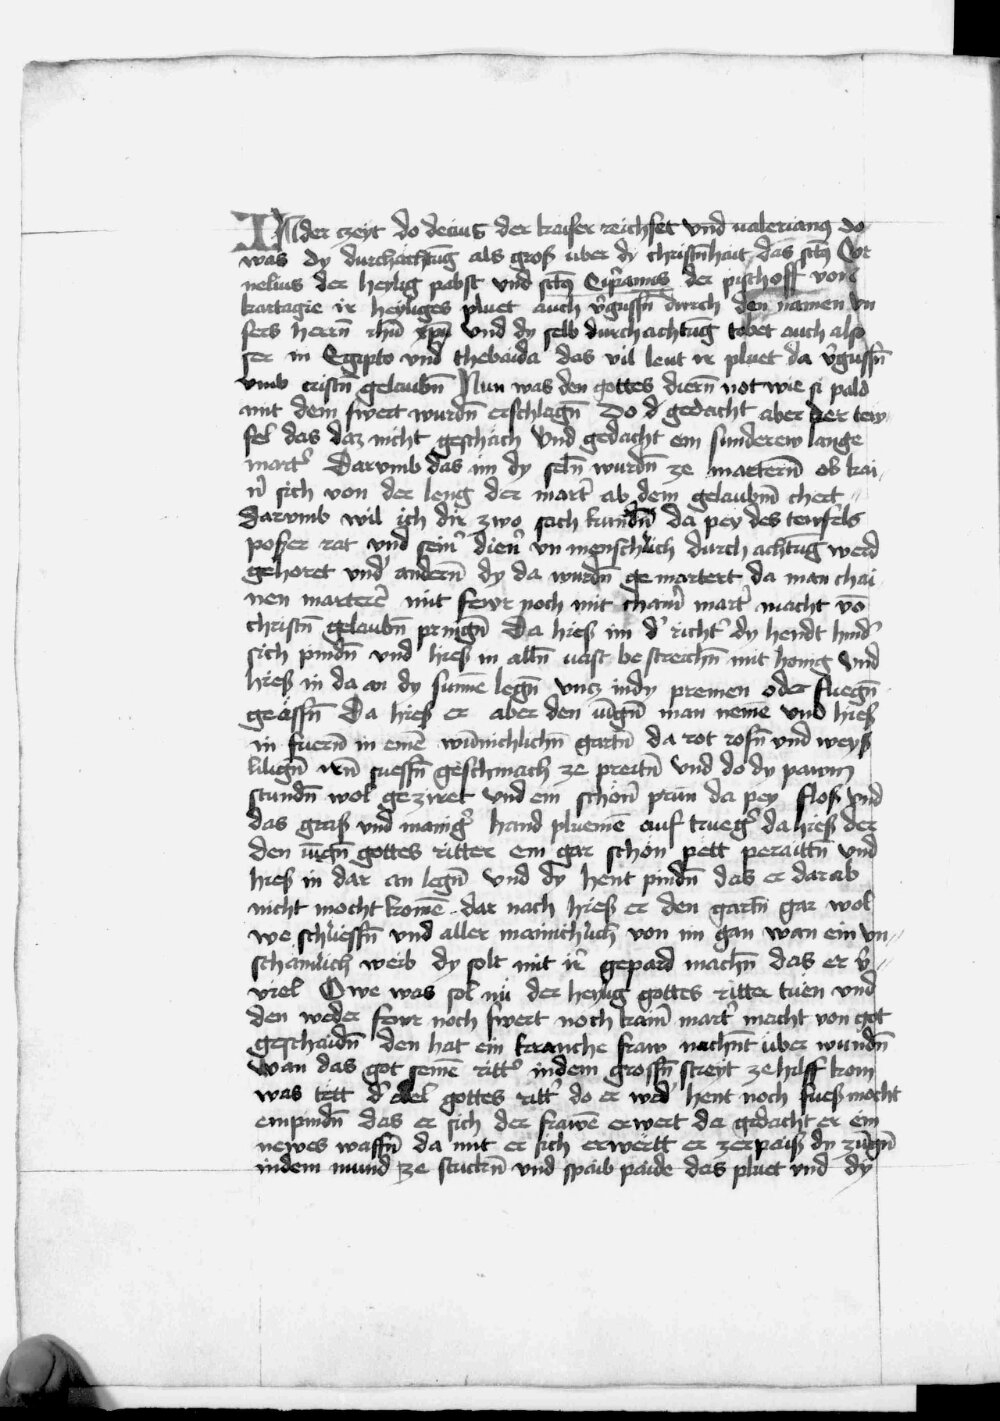 In der czeyt do decius der kaiser reichset vnd ualerianꝰ do
was dy durchachtūg als gros über dy christn̄hait das sctꝰ Cor
nelius der heylig pabst vnd sctꝰ Cip̄anus der pischoff von
kartagie ir heyliges pluet auch v̓gussn̄ durch den namen vn
sers herrn̄ ihū xp̄i vnd dy selb durchachtūg tobet auch also
ser in Egipto vnd thebaida das vil leut ir pluet da v̓gussn̄
vmb cristn̄ gelaubn̄ Nun was den gottes diern̄ not wie si pald
mit dem swert wurdn̄ erschlagn̄ Do d̓ gedacht aber der tew
fel das daz nicht geschach vnd gedacht ein sunderew lange
mart̓ Darvmb das im dy seln̄ wurdn̄ ze martern̄ ob kai
n̓ sich von der leng der mart̓ ab dem gelaubn̄ chert
Darvmb wil ich dir zwo sach kundn̄ da pey des tewfels
poser rat vnd sein̓ dien̓ vn menschlich durch achtūg werd
gehoret vnd̓ andern̄ dy da wurdn̄ gemartert da man chai
nen marterē mit fewr noch mit chain̓ mart̓ macht vō
christn̄ gelaubn̄ pringn̄ Da hies im d̓ richt̓ dy hendt hind̓
sich pindn̄ vnd hies in alln̄ uast bestreichn̄ mit honig vnd
hies in da an dy sunnē legn̄ vncz in dy premen oder fluegn̄
gëassn̄ Da hies er aber den iūgn̄ man nemē vnd hies
in fuern̄ in einē wūnichlichn̄ gartn̄ da rot rosn̄ vnd weyß
lilign̄ ein̄ suessn̄ geschmach ze preitn̄ vnd do dy pawm
stundn̄ wol geziret vnd ein schön̓ prūn da pey flos vnd
das gras vnd manig̓ hand pluemē auf trueg̓ da hies der
den iūgn̄ gottes ritter ein gar schön pett peraittn̄ vnd
hies in dar an legn̄ vnd dy hent pindn̄ das er darab
nicht mocht komē dar nach hies er den gartn̄ gar wol
we schliessn̄ vnd aller mainichlich von im gan wan ein vn
schamlich weib dy solt mit ir̓ gepard machn̄ das er v̓
viel Owe was sol nū der heylig gottes ritter tuen vnd
den weder fewr noch swert noch kain̓ mart̓ macht von got
geschaidn̄ den hat ein krancke fraw nachn̄t über wundn̄
Wan das got seinē ritt̓ in dem grossn̄ streyt ze hilff kom
was tett d̓ edel gottes ritt̓ do er wed̓ hent noch fues mocht
empindn̄ das er sich der frawē erwert da gedacht er ein
newes waffn̄ da mit er sich erwertt er zerpais dy zūgn̄
in dem mund ze stuckn̄ vnd spaib paide das pluet vnd dy